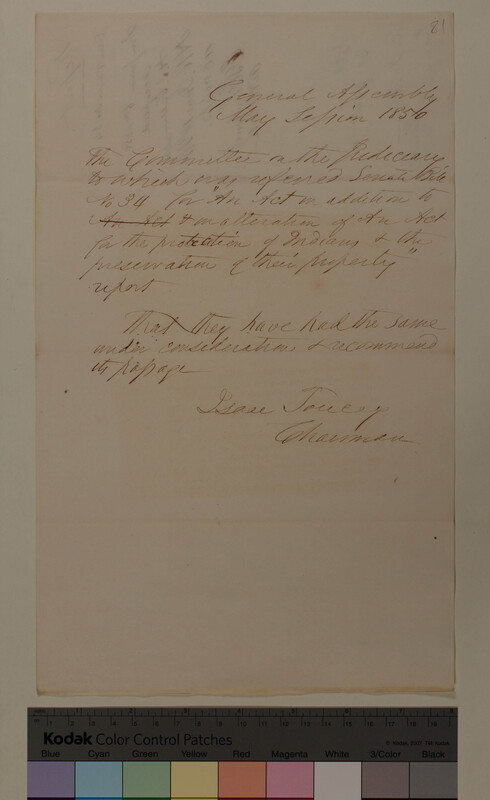 81
General Assembly
May Session 1850
The Committee on the Judiciary
to which was referred Senate Bill
No 34 for "An Act in addition to
An Act & in alteration of An Act
for the protection of Indians & the
preservation of their property"
report
That they have had the same
under consideration & recommend
its passage
Isaac Toucey
Chairman
Kodak Color Control Patches
© Kodak, 2007 TM: Kodak
Blue Cyan Green Yellow Red Magenta White 3/Color Black